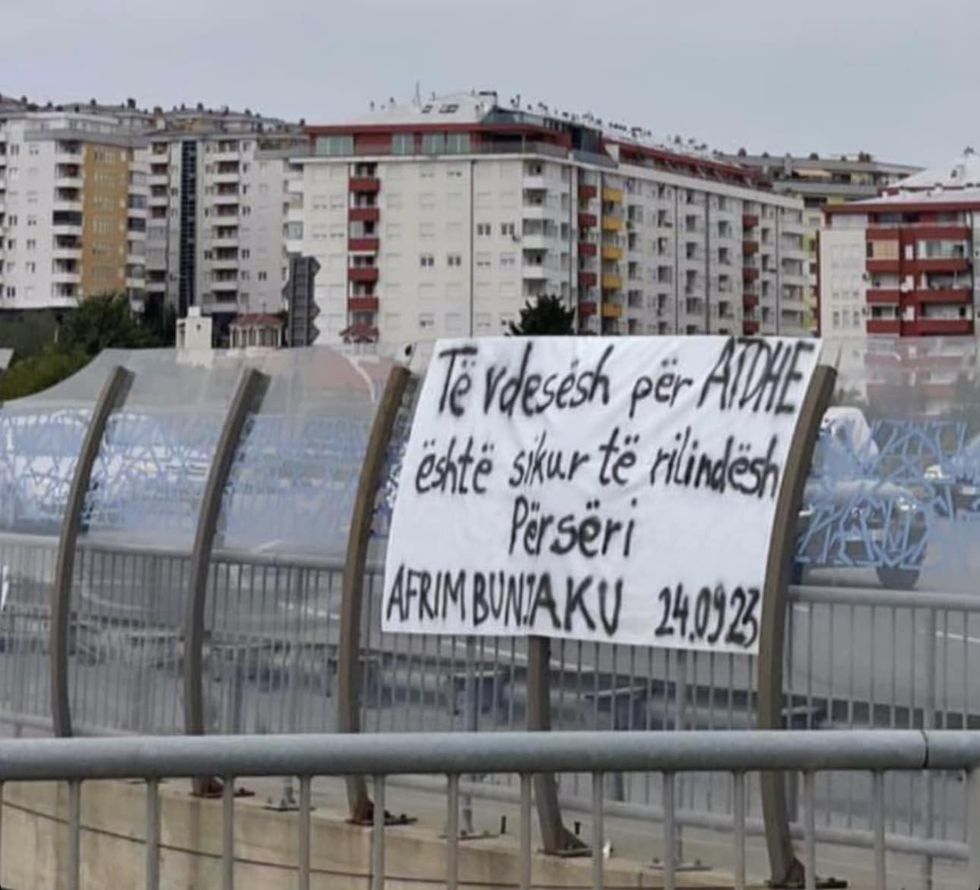 Të vdesësh për ATDHE
është sikur të rilindësh
Përsëri
AFRIM BUNJAKU 24.09.23